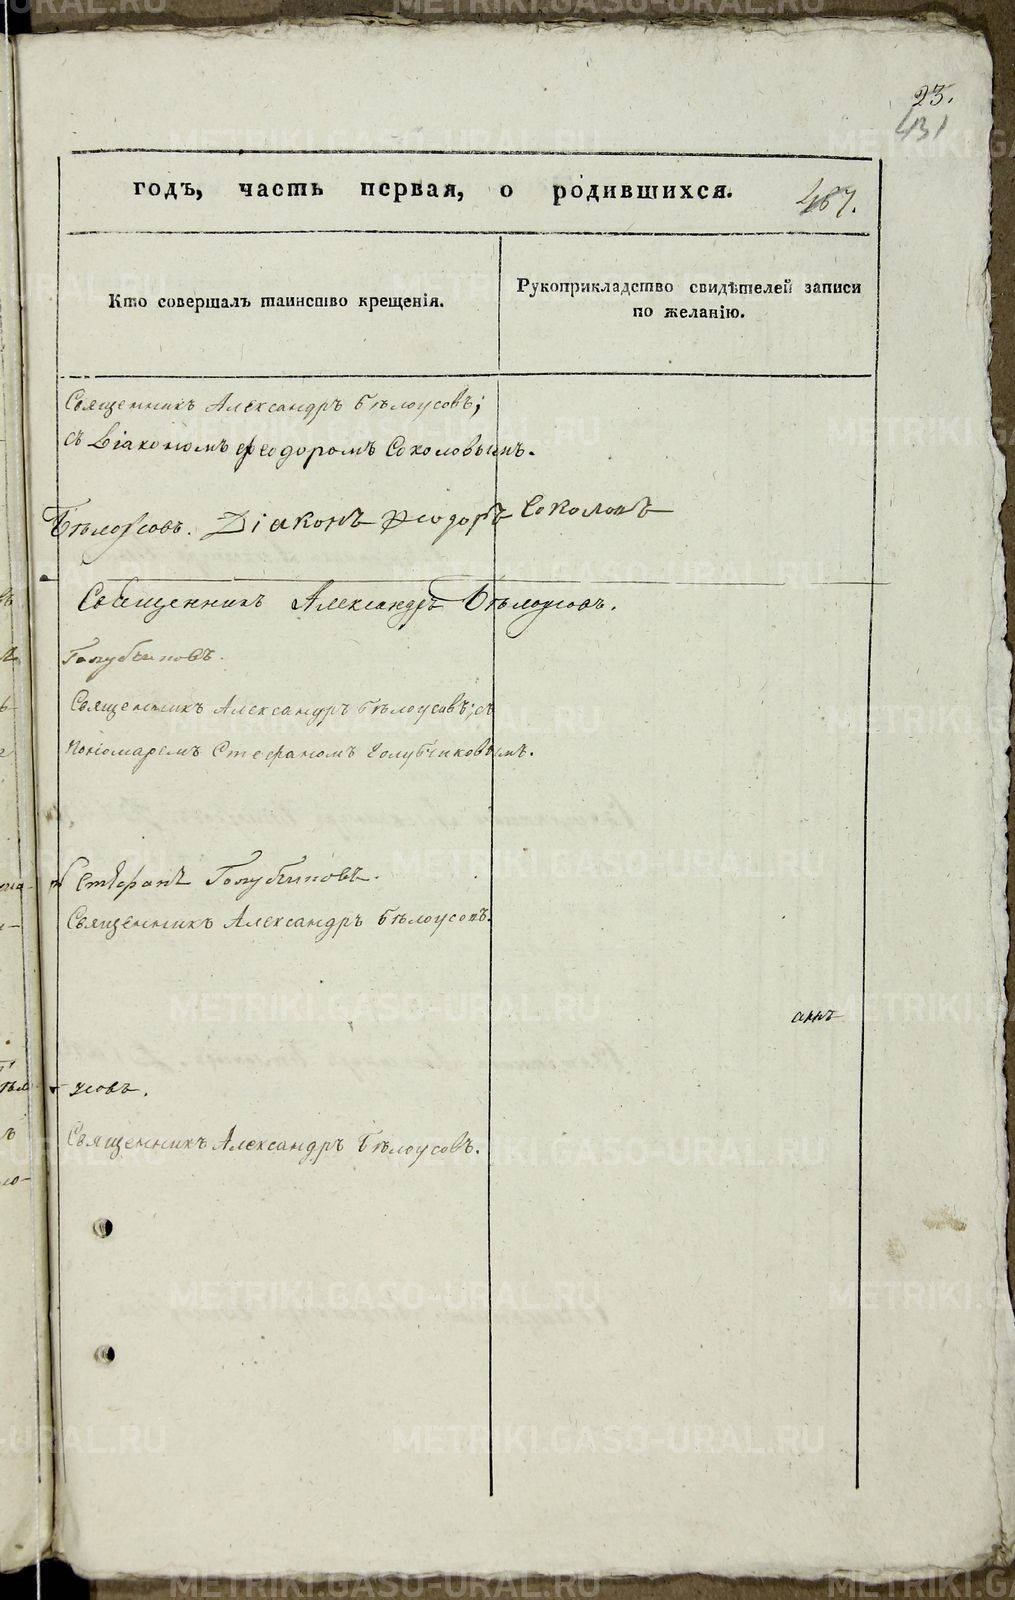 23.
431
годъ, часть первая, о родившихся.
467.
Кто совершалъ таинство крещенія.
Рукоприкладство свидѣтелей записи
по желанію.
Священникъ Александръ Бѣлоусовъ;
съ Діакономъ Феодоромъ Соколовымъ.
Бѣлоусовъ. Діаконъ Феодоръ Соколовъ
Священникъ Александръ Бѣлоусовъ.
Голубчиковъ.
Священникъ Александръ Бѣлоусовъ; съ
Пономаремъ Стефаномъ Голубчиковымъ.
Стефанъ Голубчиковъ.
Священникъ Александръ Бѣлоусовъ.
усовъ.
Священникъ Александръ Бѣлоусовъ.
METRIKI.GASO-URAL.RU